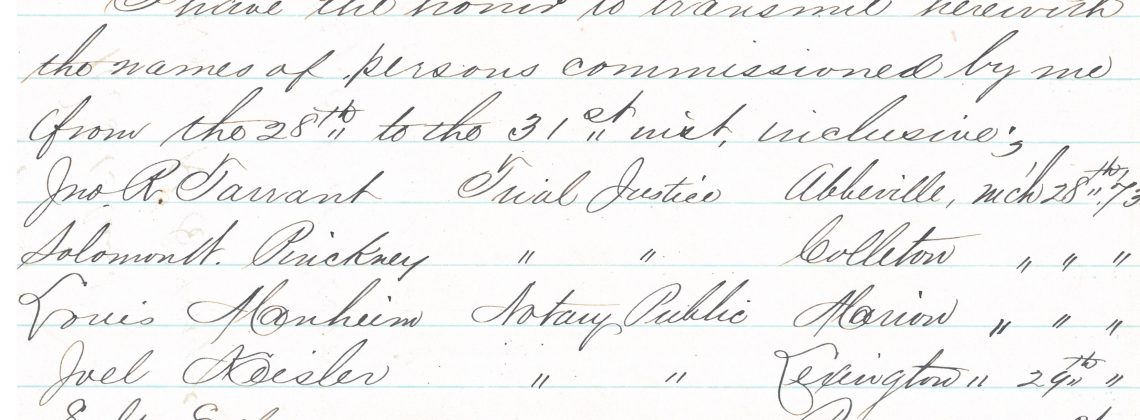 I have the honor to transmit herewith
the names of persons commissioned by me
from the 28th to the 31st inst, inclusive;
Jno. R. Tarrant Trial Justice Abbeville, Mch 28th, 73
Solomon W. Pinckney " " Colleton " " "
Louis Manheim Notary Public Marion " " "
Joel Keisler " " Lexington " 29th "